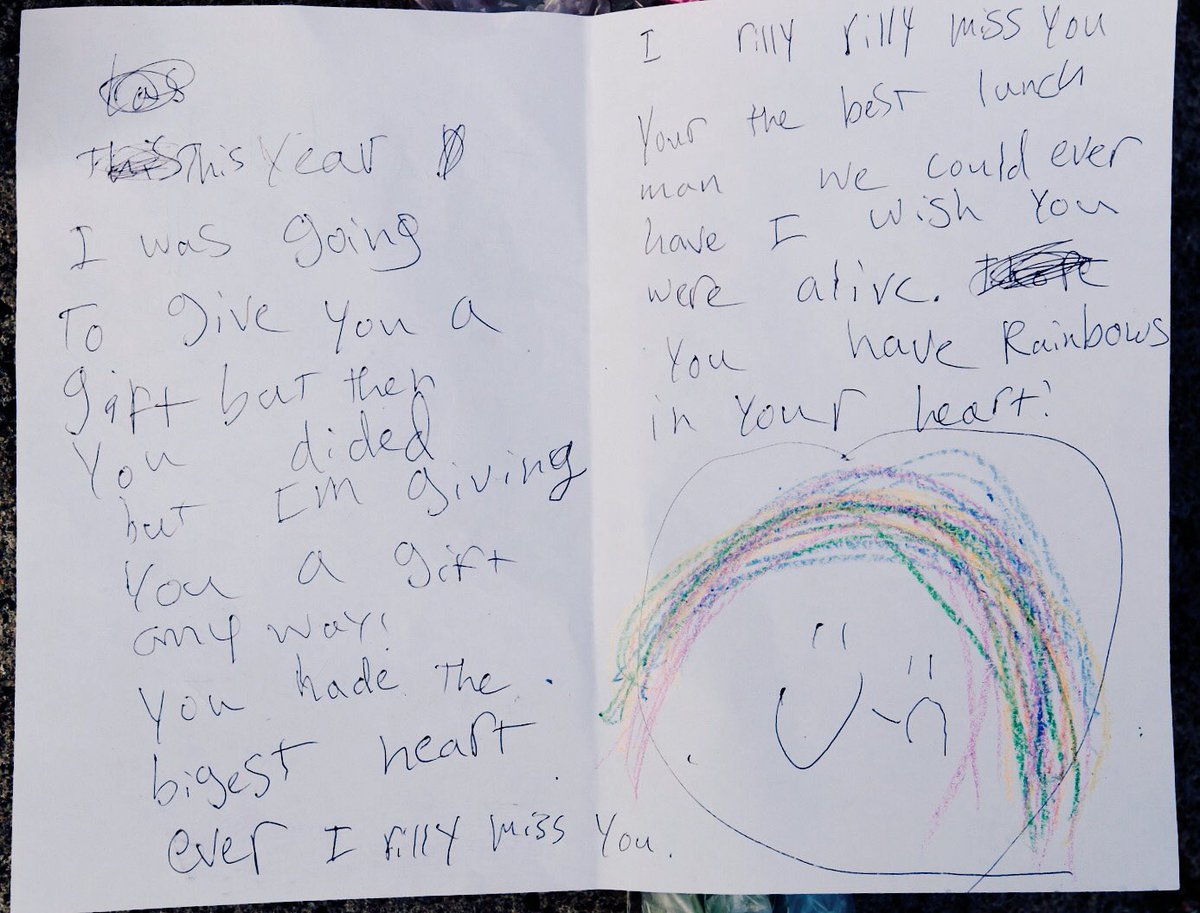 This Year
I was going
To give you a
gift but then
You dided
but I'm giving
You a gift
any way!
You hade The
bigest heart
ever I rilly miss You.
I rilly rilly miss You
Your the best lunch
man we could ever
have I wish You
were alive.
You have Rainbows
in Your heart!